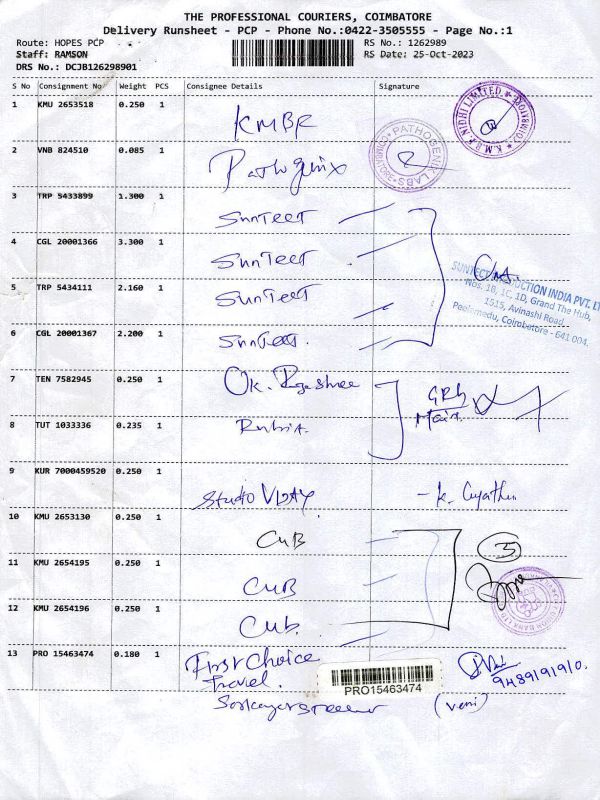 THE PROFESSIONAL COURIERS, COIMBATORE
Delivery Runsheet - PCP - Phone No.:0422-3505555 - Page No.:1
Route: HOPES PCP RS No.: 1262989
Staff: RAMSON RS Date: 25-Oct-2023
DRS No.: DCJB126298901
S No Consignment No Weight PCS Consignee Details Signature
1 KMU 2653518 0.250 1 KMBR
K.M.B.R. NIDHI LIMITED
2 VNB 824510 0.085 1 Pathogenix
PATHOGENIX LABS
3 TRP 5433899 1.300 1 SunTeet
4 CGL 20001366 3.300 1 SunTeet
SUNTECT INDUCTION INDIA PVT. LT
Nos. 1B, 1C, 1D, Grand The Hub,
1515, Avinashi Road,
Peelamedu, Coimbatore - 641 004.
5 TRP 5434111 2.160 1 SunTeet
6 CGL 20001367 2.200 1 SunTeet.
7 TEN 7582945 0.250 1 Ok. Rajashree
8 TUT 1033336 0.235 1 Rubia.
9 KUR 7000459520 0.250 1 Studio VIJAY
10 KMU 2653130 0.250 1 CUB 3
11 KMU 2654195 0.250 1 CUB
12 KMU 2654196 0.250 1 CUB.
13 PRO 15463474 0.180 1 First Choice
Travel.
PRO15463474
9489191910.
(veni)